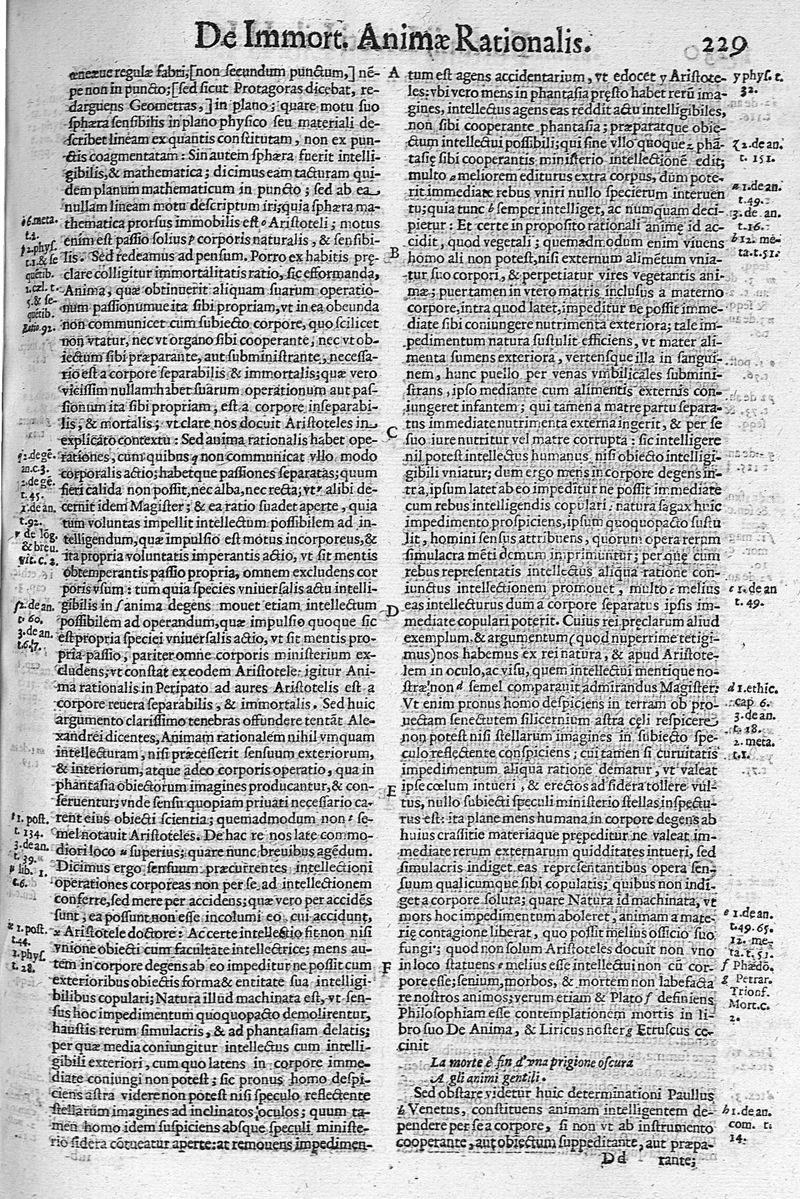 De Immort. Animæ Rationalis.
229
æneæue regulæ fabri;[non secundum punctum,] nē-
pe non in puncto;[sed sicut Protagoras dicebat, re-
darguens Geometras,] in plano; quare motu suo
sphæra sensibilis in plano physico seu materiali de-
scribet lineam ex quantis constitutam, non ex pun-
ctis coagmentatam: Sin autem sphæra fuerit intelli-
gibilis,& mathematica; dicimus eam tacturam qui-
dem planum mathematicum in puncto; sed ab ea
nullam lineam motu descriptum iri;quia sphæra ma-
thematica prorsus immobilis est o Aristoteli; motus
enim est passio solius p corporis naturalis, & sensibi-
lis. Sed redeamus ad pensum. Porro ex habitis prę-
clare colligitur immortalitatis ratio, sic efformanda,
Anima, quæ obtinuerit aliquam suarum operatio-
num passionumue ita sibi propriam, vt in ea obeunda
non communicet cum subiecto corpore, quo scilicet
non vtatur, nec vt organo sibi cooperante, nec vt ob-
iectum sibi præparante, aut subministrante, necessa-
rio est a corpore separabilis & immortalis; quæ vero
vicissim nullam habet suarum operationum aut pas-
sionum ita sibi propriam, est a corpore inseparabi-
lis, & mortalis; vt clare nos docuit Aristoteles in
explicato contextu: Sed anima rationalis habet ope-
rationes, cum quibus q non communicat vllo modo
corporalis actio; habetque passiones separatas; quum
fieri calida non possit, nec alba, nec recta; vt r alibi de-
cernit idem Magister; & ea ratio suadet aperte, quia
tum voluntas impellit intellectum possibilem ad in-
telligendum, quæ impulsio est motus incorporeus,&
ita propria voluntatis imperantis actio, vt sit mentis
obtemperantis passio propria, omnem excludens cor
poris vsum: tum quia species vniuersalis actu intelli-
gibilis in s anima degens mouet etiam intellectum
possibilem ad operandum, quæ impulsio quoque sic
est propria speciei vniuersalis actio, vt sit mentis pro-
pria passio, pariter omne corporis ministerium ex-
cludens; vt constat ex eodem Aristotele: igitur Ani-
ma rationalis in Peripato ad aures Aristotelis est a
corpore reuera separabilis, & immortalis. Sed huic
argumento clarissimo tenebras offundere tentāt Ale-
xandrei dicentes, Animam rationalem nihil vmquam
intellecturam, nisi præcesserit sensuum exteriorum,
& interiorum, atque adeo corporis operatio, qua in
phantasia obiectorum imagines producantur, & con-
seruentur; vnde sensu quopiam priuati necessario ca-
rent eius obiecti scientia; quemadmodum non t se-
mel notauit Aristoteles. De hac re nos late commo-
diori loco u superius; quare nunc breuibus agēdum.
Dicimus ergo sensuum præcurrentes intellectioni
operationes corporeas non per se ad intellectionem
conferre, sed mere per accidens; quæ vero per accidēs
sunt; ea possunt non esse incolumi eo cui accidunt,
x Aristotele doctore: Ac certe intellectio fit non nisi
vnione obiecti cum facultate intellectrice; mens au-
tem in corpore degens ab eo impeditur ne possit cum
exterioribus obiectis forma & entitate sua intelligi-
bilibus copulari; Natura illud machinata est, vt sen-
sus hoc impedimentum quoquopacto demolirentur,
haustis rerum simulacris, & ad phantasiam delatis;
per quæ media coniungitur intellectus cum intelli-
gibili exteriori, cum quo latens in corpore imme-
diate coniungi non potest; sic pronus homo despi-
ciens astra videre non potest nisi speculo reflectente
stellarum imagines ad inclinatos oculos; quum ta-
men homo idem suspiciens absque speculi ministe-
rio sidera cōtueatur aperte: at remouens impedimen-
o 6. meta.
t.2.
p 2. phys.
t.1. & se
quētib.
1. cæl. t.
5. & se-
quētib.
Ratio.92.
q 2. de gē.
an. c.3.
r 2. de gē.
t.45.
1. de an.
t.92.
r de lōg.
& breu.
vit. c.2.
s 2. de an.
t. 60.
3. de an.
t.6.7.
t 1. post.
t. 134.
3. de an.
t. 39.
u lib. 1.
c.6.
x 1. post.
t.44.
1. phys.
t. 28.
A
B
C
D
E
F
tum est agens accidentarium, vt edocet y Aristote-
les: vbi vero mens in phantasia pręsto habet rerū ima-
gines, intellectus agens eas reddit actu intelligibiles,
non sibi cooperante phantasia; præparatque obie-
ctum intellectui possibili; qui sine vllo quoque z phā-
tasię sibi cooperantis ministerio intellectionē edit;
multo a meliorem editurus extra corpus, dum pote-
rit immediate rebus vniri nullo specierum interuen
tu; quia tunc b semper intelliget, ac numquam deci-
pietur: Et certe in proposito rationali animę id ac-
cidit, quod vegetali; quemadmodum enim viuens
homo ali non potest, nisi externum alimētum vnia-
tur suo corpori, & perpetiatur vires vegetantis ani-
mæ; puer tamen in vtero matris inclusus a materno
corpore, intra quod latet, impeditur ne possit imme-
diate sibi coniungere nutrimenta exteriora; tale im-
pedimentum natura sustulit efficiens, vt mater ali-
menta sumens exteriora, vertensque illa in sangui-
nem, hunc puello per venas vmbilicales submini-
strans, ipso mediante cum alimentis externis con-
iungeret infantem; qui tamen a matre partu separa-
tus immediate nutrimenta externa ingerit, & per se
suo iure nutritur vel matre corrupta: sic intelligere
nil potest intellectus humanus nisi obiecto intelligi-
gibili vniatur; dum ergo mens in corpore degens in-
tra, ipsum latet ab eo impeditur ne possit immediate
cum rebus intelligendis copulari. natura sagax huic
impedimento prospiciens, ipsum quoquopacto sustu
lit, homini sensus attribuens, quorum opera rerum
simulacra mēti demum imprimuntur; per quę cum
rebus representatis intellectus aliqua ratione con-
iunctus intellectionem promouet, multo c melius
eas intellecturus dum a corpore separatus ipsis im-
mediate copulari poterit. Cuius rei preclarum aliud
exemplum, & argumentum (quod nuperrime retigi-
mus) nos habemus ex rei natura, & apud Aristote-
lem in oculo, ac visu, quem intellectui mentique no-
stræ non d semel comparauit admirandus Magister:
Vt enim pronus homo despiciens in terram ob pro-
uectam senectutem silicernium astra cęli respicere
non potest nisi stellarum imagines in subiecto spe-
culo reflectente conspiciens; cui tamen si curuitatis
impedimentum aliqua ratione dematur, vt valeat
ipse cœlum intueri, & erectos ad sidera tollere vul-
tus, nullo subiecti speculi ministerio stellas inspectu-
rus est: ita plane mens humana in corpore degens ab
huius crassitie materiaque prepeditur ne valeat im-
mediate rerum externarum quidditates intueri, sed
simulacris indiget eas representantibus opera sen-
suum qualicumque sibi copulatis; quibus non indi-
get a corpore soluta; quare Natura id machinata, vt
mors hoc impedimentum aboleret, animam a mate-
rię contagione liberat, quo possit melius officio suo
fungi; quod non solum Aristoteles docuit non vno
in loco statuens e melius esse intellectui non cū cor-
pore esse; senium, morbos, & mortem non labefacta
re nostros animos; verum etiam & Plato f definiens
Philosophiam esse contemplationem mortis in li-
bro suo De Anima, & Liricus noster g Etruscus ce-
cinit
La morte è fin d'vna prigione oscura
A gli animi gentili.
Sed obstare videtur huic determinationi Paullus
h Venetus, constituens animam intelligentem de-
pendere per se a corpore, si non vt ab instrumento
cooperante, aut obiectum suppeditante, aut præpa-
y phys. t.
32.
z 2. de an.
t. 151.
a 1. de an.
t.49.
3. de an.
t.16.
b 12. me-
ta. t.51.
c 1. de an
t. 49.
d 1. ethic.
cap 6.
3. de an.
t. 18.
2. meta.
t.1.
e 1. de an.
t.49.65.
12. me-
ta. t. 51.
f Phædō.
g Petrar.
Trionf.
Mort. c.
2.
h 1. de an.
com. t.
14.
Dd
rante;